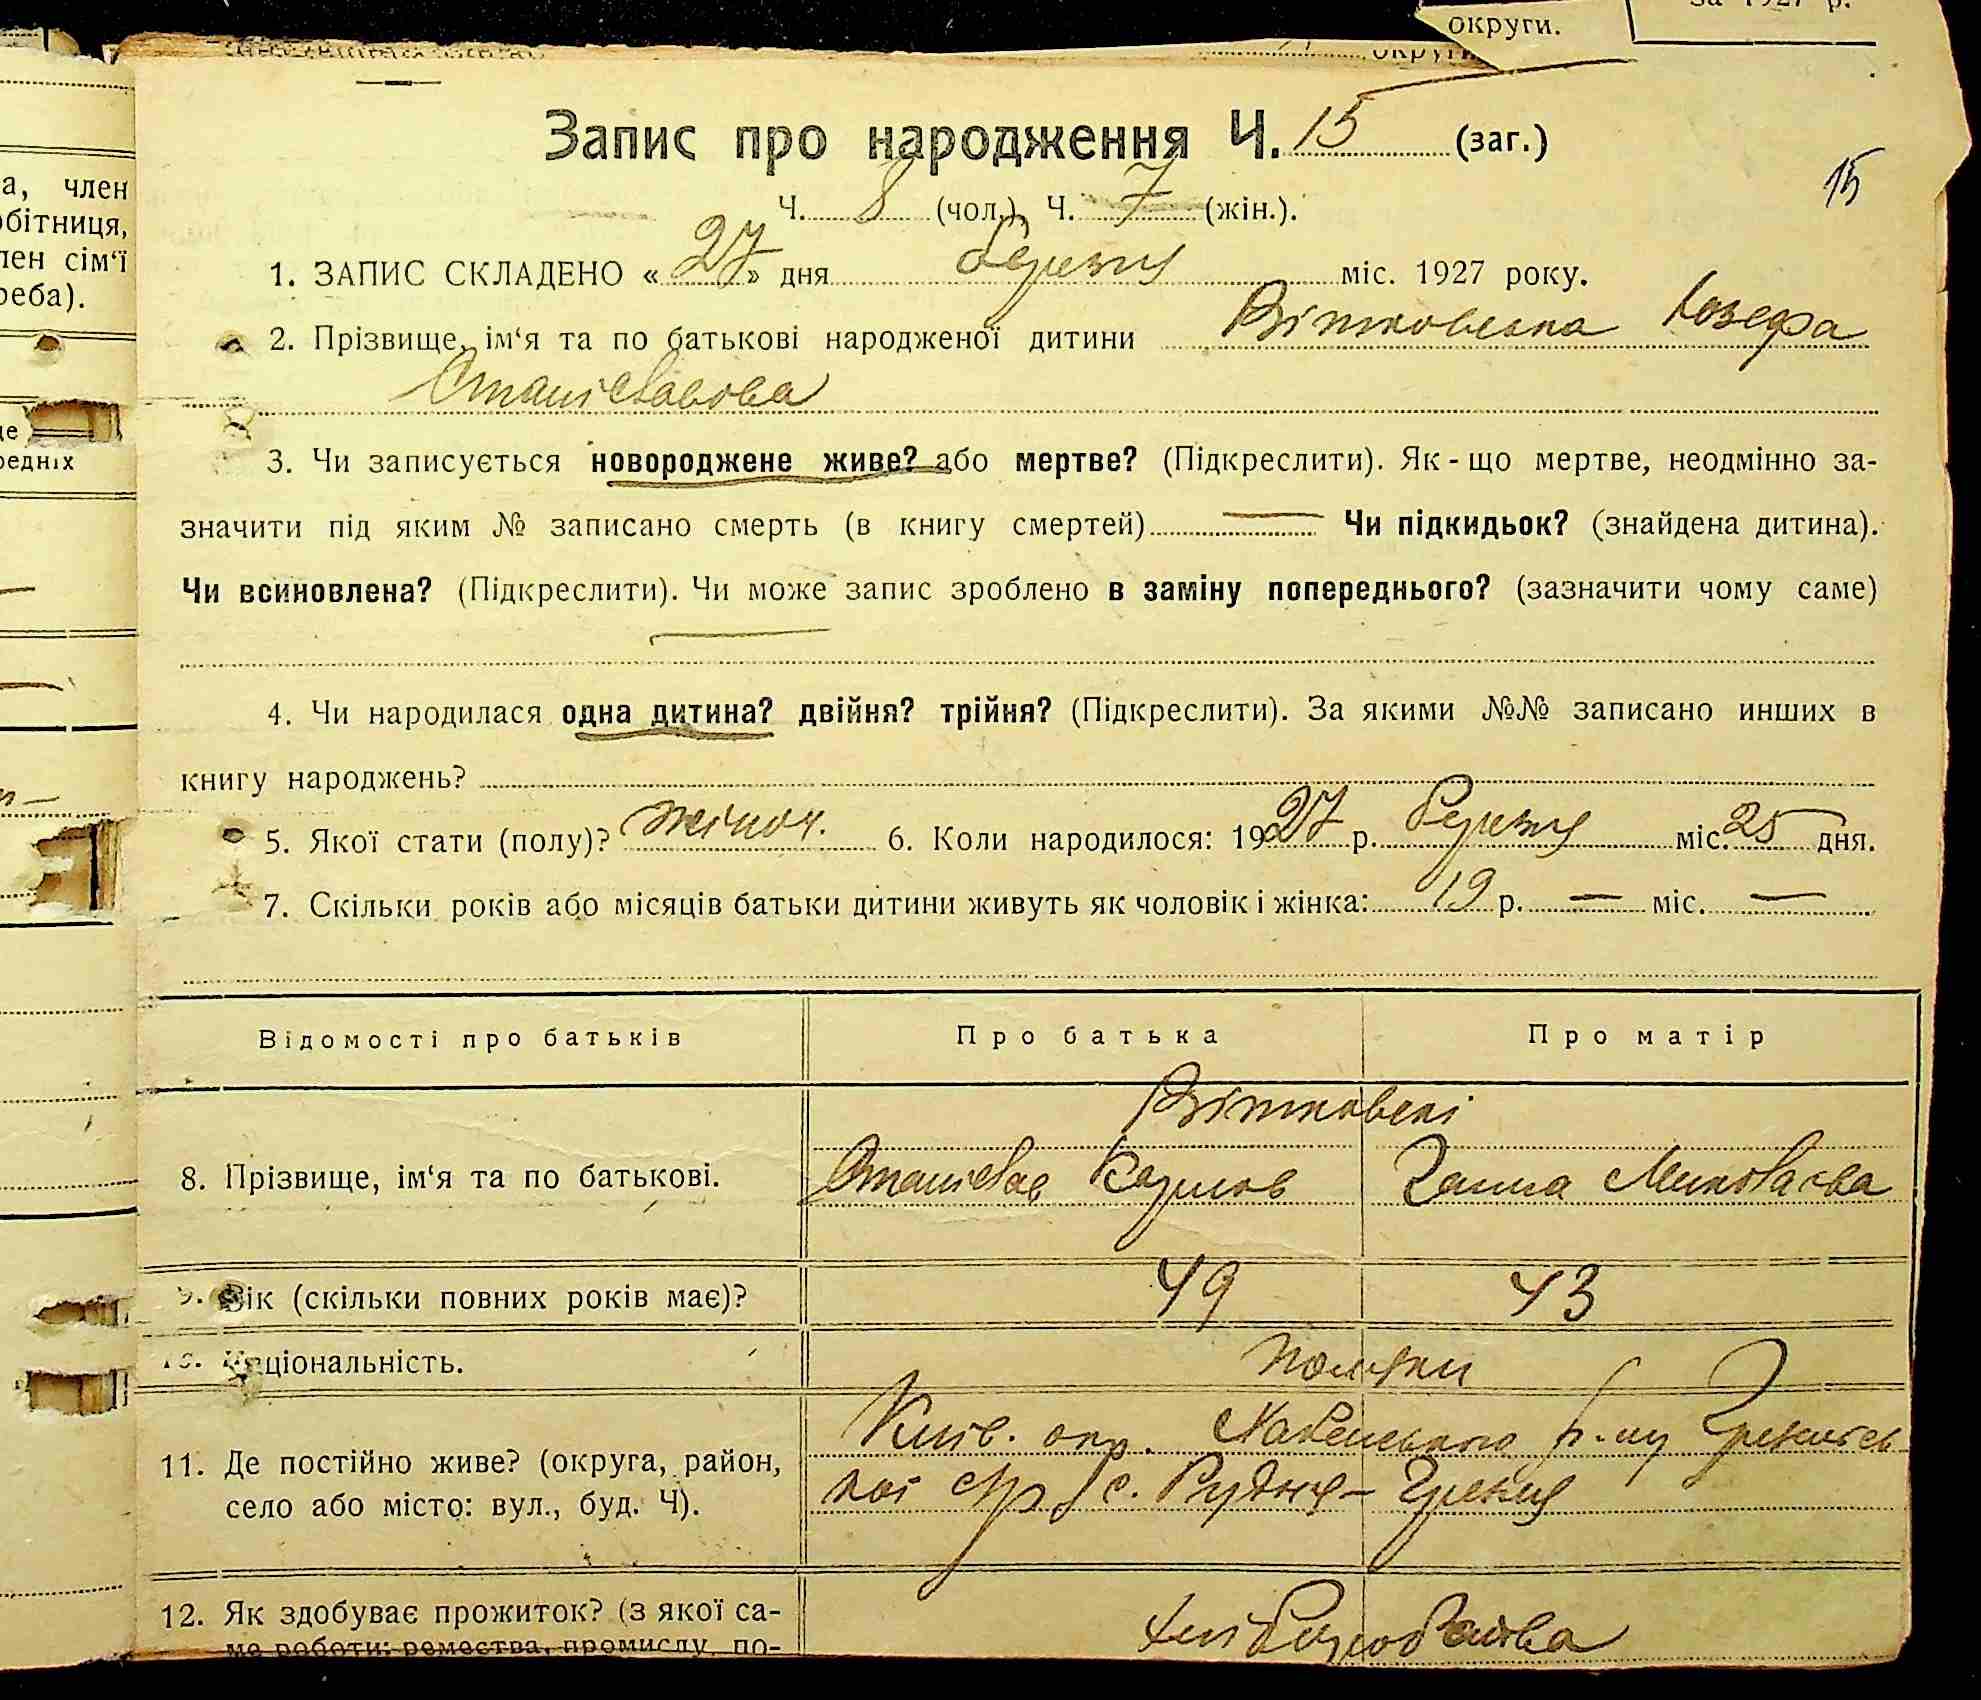 округи.
за 1927 р.
Запис про народження Ч. 15 (заг.)
15
Ч. 8 (чол.), Ч. 7 (жін.).
1. ЗАПИС СКЛАДЕНО « 27 » дня березня міс. 1927 року.
2. Прізвище, ім‘я та по батькові народженої дитини Вітковська Юзефа
Станіславова
3. Чи записується новороджене живе? або мертве? (Підкреслити). Як-що мертве, неодмінно за-
значити під яким № записано смерть (в книгу смертей) — Чи підкидьок? (знайдена дитина).
Чи всиновлена? (Підкреслити). Чи може запис зроблено в заміну попереднього? (зазначити чому саме)
4. Чи народилася одна дитина? двійня? трійня? (Підкреслити). За якими №№ записано инших в
книгу народжень?
5. Якої стати (полу)? жіноч. 6. Коли народилося: 1927 р. березня міс. 25 дня.
7. Скільки років або місяців батьки дитини живуть як чоловік і жінка: 19 р. — міс. —
Відомості про батьків Про батька Про матір
Вітковські
8. Прізвище, ім‘я та по батькові. Станіслав Ганна Миколаєва
9. Вік (скільки повних років має)? 49 43
10. Національність. поляки
Київ. окр. Хабенського р-ну Грезлсь
11. Де постійно живе? (округа, район,
село або місто: вул., буд. Ч). кої с/р с. Рудня-Грезля
12. Як здобуває прожиток? (з якої са- хліборобства
ме роботи: ремества, промислу, по-
а, член
обітниця,
лен сім‘ї
реба).
це
редніх